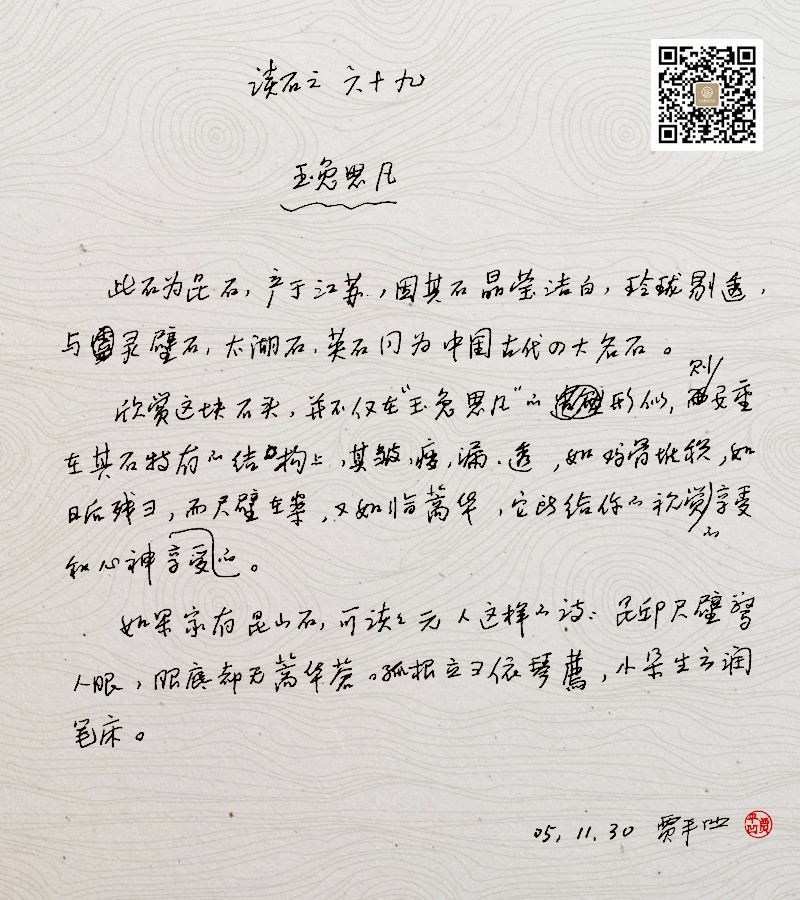 读石之六十九
玉兔思凡
此石为昆石，产于江苏，因其石晶莹洁白，玲珑剔透，
与灵璧石，太湖石，英石同为中国古代四大名石。
欣赏这块石头，并不仅在“玉兔思凡”的形似，则要重
在其石特有的结构上，其皱，瘦，漏，透，如鸡骨堆积，如
日后残雪，而尺璧在案，又如临嵩华，它所给你的视觉享受
和心神享受的。
如果家有昆山石，可读读元人这样的诗：昆邱尺璧惊
人眼，眼底都无嵩华苍。孤根立雪依琴荐，小朵生云润
笔床。
05.11.30 贾平凹
贾平凹